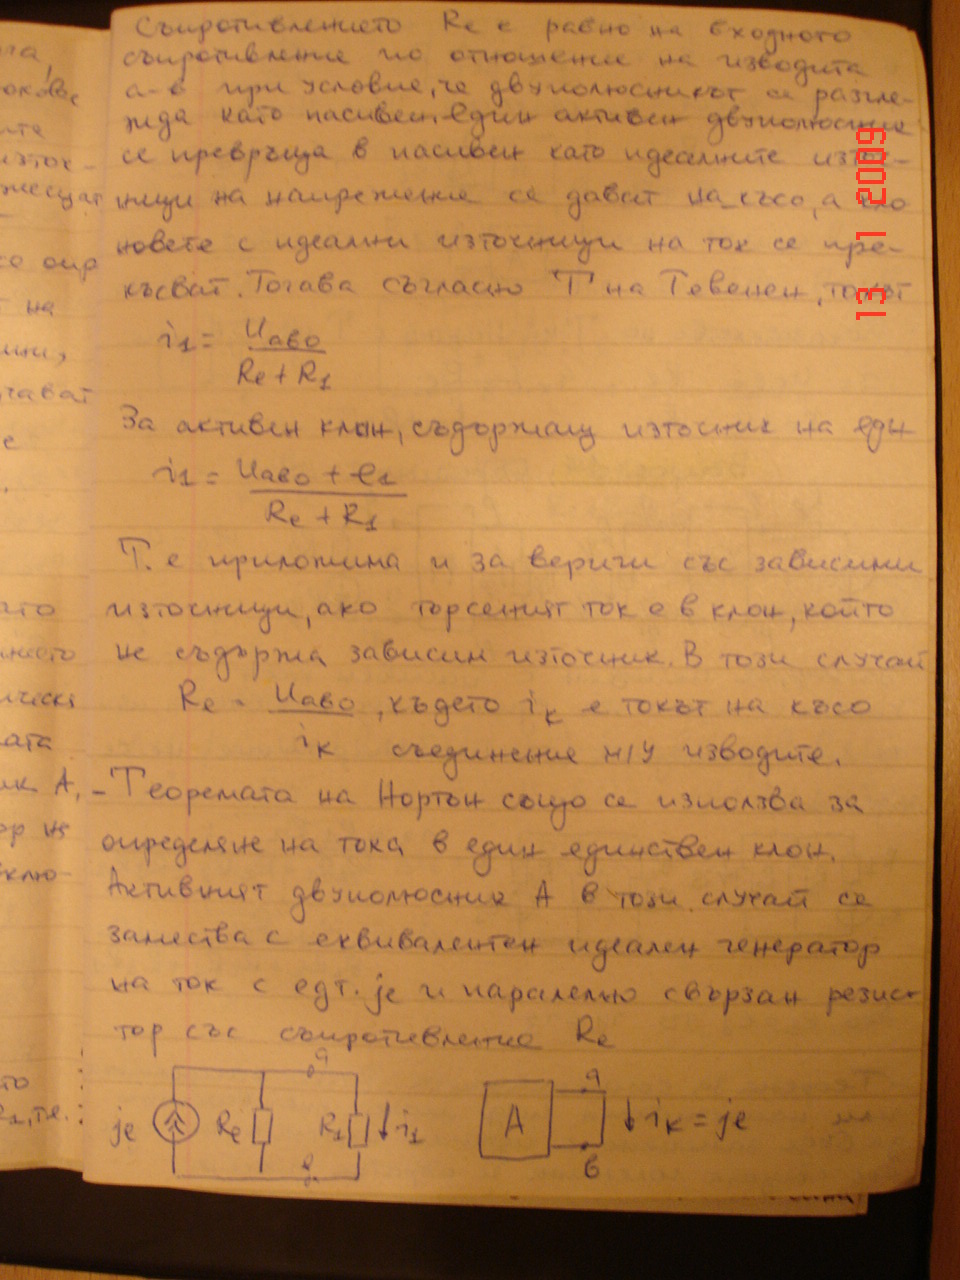 Съпротивлението Re е равно на входното
съпротивление по отношение на изводита
а-в при условие, че двуполюсникът се разгле-
жда като пасивен. Един активен двуполюсник
се превръща в пасивен като идеалните източ-
ници на напрежение се дават на късо, а кло
новете с идеални източници на ток се пре-
късват. Тогава съгласно Т на Тевенен, токът
i1 = Uаво
Re + R1
За активен клон, съдържащ източник на едн
i1 = Uаво + e1
Re + R1
Т. е приложима и за вериги със зависими
източници, ако търсеният ток е в клон, който
не съдържа зависим източник. В този случай
Re = Uаво , където iк е токът на късо
iк съединение м/у изводите.
- Теоремата на Нортън също се използва за
определяне на тока в един единствен клон.
Активният двуполюсник А в този случай се
замества с еквивалентен идеален генератор
на ток с едт. je и паралелно свързан резис-
тор със съпротивление Re
a
je Re R1 i1
в
A
a
iк = je
в
13 1 2009